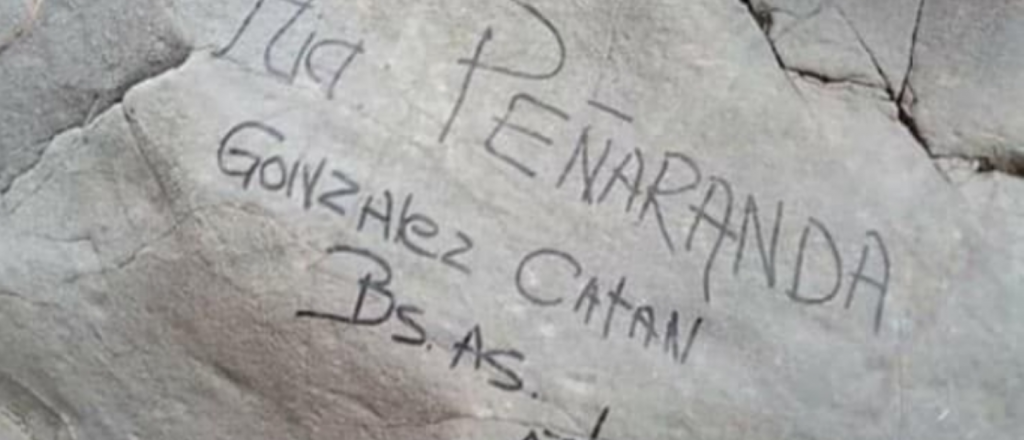 Flia PEÑARANDA
GONZAlez CAtAN
Bs. AS.